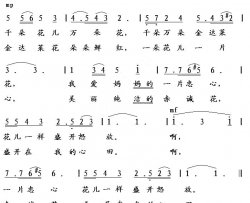 mp
5 5 6 5 3 | 4. 5 4 3 2. | 5 7 2 4 5. 4 3 2
千朵 花儿 万朵 花, 千朵 万朵 金达莱
金达莱 花 朵朵 鲜红, 一朵 花儿 一片
3. 3. | 1 3 4 5 i | 7. 7 6 5 6 |
花, 我爱妈妈的一片忠心,
心, 美丽纯洁的赤诚花,
mf
5 5 4 3 2. 5 2 3 | 1. 1. | i. i. |
花儿一样 盛开怒放, 啊,
盛开在我的心田, 啊,
7. 7 6 5 6 | 5 5 4 3 2. 5 2 3 | 1. 1. |
一片忠心 花儿一样 盛开怒放,